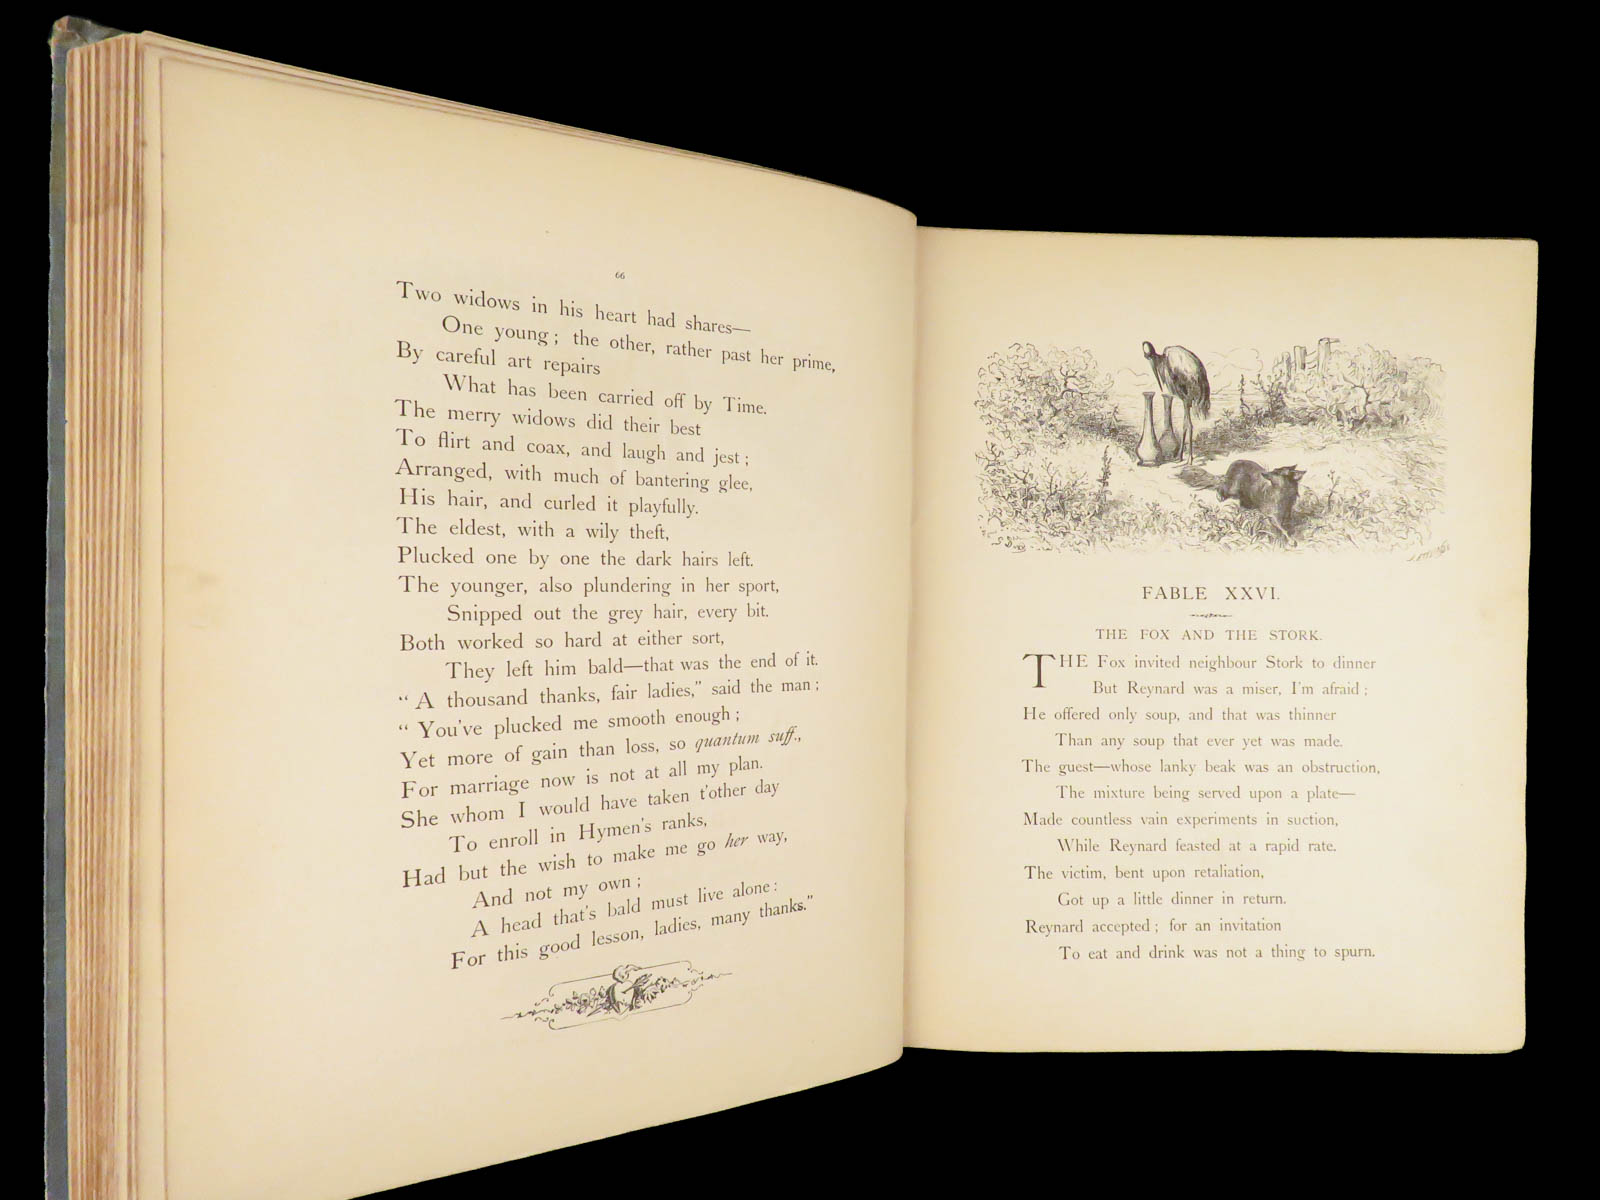 66
Two widows in his heart had shares—
One young; the other, rather past her prime,
By careful art repairs
What has been carried off by Time.
The merry widows did their best
To flirt and coax, and laugh and jest;
Arranged, with much of bantering glee,
His hair, and curled it playfully.
The eldest, with a wily theft,
Plucked one by one the dark hairs left.
The younger, also plundering in her sport,
Snipped out the grey hair, every bit.
Both worked so hard at either sort,
They left him bald—that was the end of it.
“A thousand thanks, fair ladies,” said the man;
“You've plucked me smooth enough;
Yet more of gain than loss, so quantum suff.,
For marriage now is not at all my plan.
She whom I would have taken t'other day
To enroll in Hymen's ranks,
Had but the wish to make me go her way,
And not my own;
A head that's bald must live alone:
For this good lesson, ladies, many thanks.”
FABLE XXVI.
THE FOX AND THE STORK.
THE Fox invited neighbour Stork to dinner
But Reynard was a miser, I'm afraid;
He offered only soup, and that was thinner
Than any soup that ever yet was made.
The guest—whose lanky beak was an obstruction,
The mixture being served upon a plate—
Made countless vain experiments in suction,
While Reynard feasted at a rapid rate.
The victim, bent upon retaliation,
Got up a little dinner in return.
Reynard accepted; for an invitation
To eat and drink was not a thing to spurn.